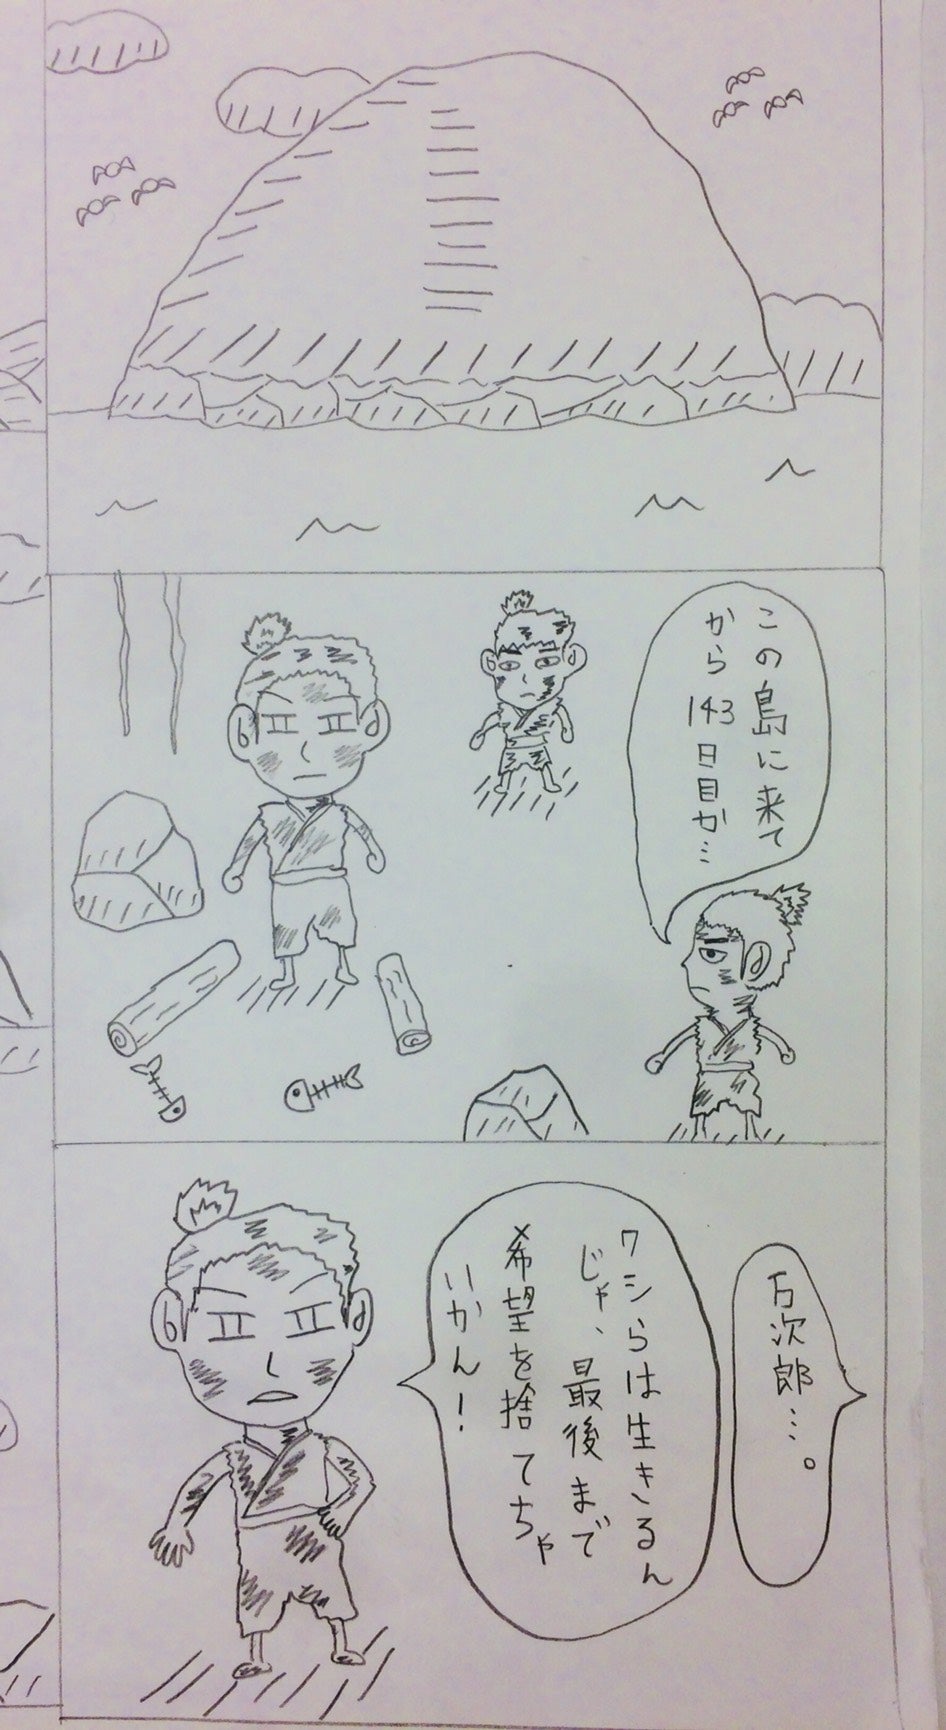 この島に来て
から143日目か…
万次郎…。
ワシらは生きるん
じゃ、最後まで
希望を捨てちゃ
いかん！